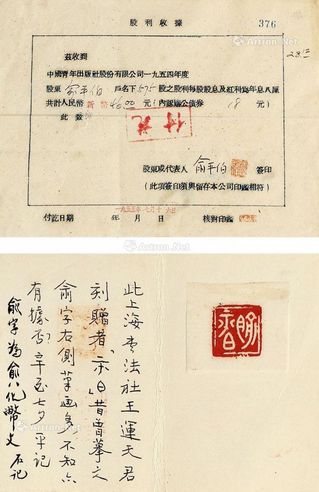 股利收據
376
茲收到
中國青年出版社股份有限公司一九五四年度
股東 俞平伯 戶名下 575 股之股利每股股息及紅利為年息八厘
共計人民幣 新幣 46.00 元(內認購公債券 18 元)
此致
付訖
股東或代表人 俞平伯 簽印
(此項簽印須與留存本公司印鑑相符)
一九五五年七月十八日
付訖日期 年 月 日 核對印鑑
此上海書法社王運天君
刻贈者,示曰昔曾摹之
俞字右側筆畫多不知亦
有據否 辛酉七夕 平記
俞字為俞八化幣文 右記
Artron.Net